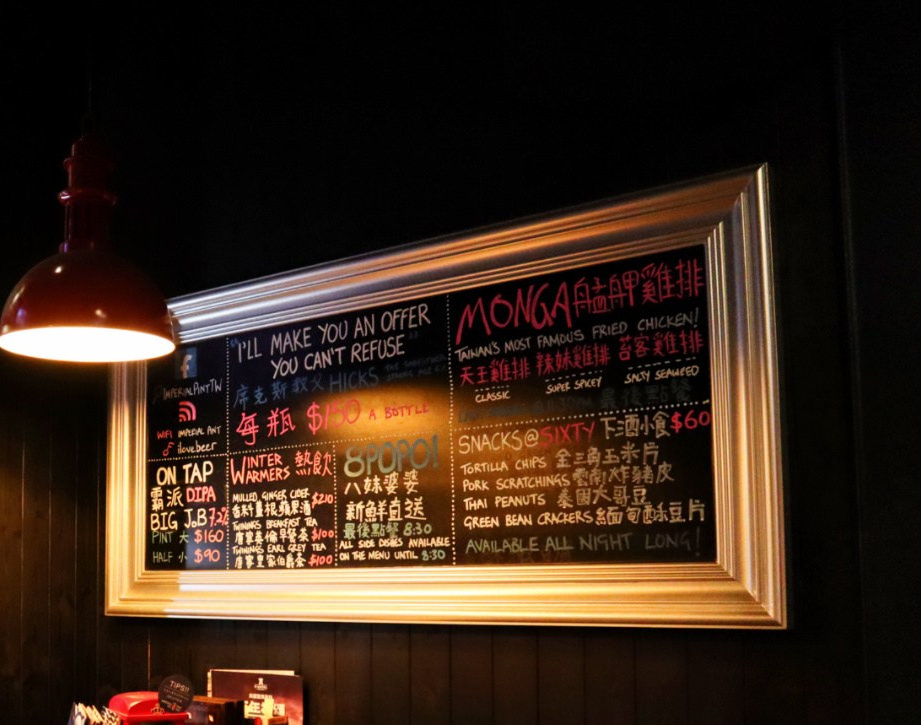 IMPERIALPINTTW
WIFI IMPERIAL PINT
ilovebeer
ON TAP
霸派 DIPA
BIG J.B 7.2%
PINT 大 $160
HALF 小 $90
"I'LL MAKE YOU AN OFFER
YOU CAN'T REFUSE"
席克斯教父 HICKS
每瓶 $150 A BOTTLE
WINTER 熱飲
WARMERS
MULLED GINGER CIDER
香料薑根蘋果酒 $210
TWININGS BREAKFAST TEA
唐寧英倫早餐茶 $100
TWININGS EARL GREY TEA
唐寧皇家伯爵茶 $100
8POPO!
八妹婆婆
新鮮直送
最後點餐 8:30
ALL SIDE DISHES AVAILABLE
ON THE MENU UNTIL 8:30
MONGA 艋舺雞排
TAIWAN'S MOST FAMOUS FRIED CHICKEN!
天王雞排 辣妹雞排 苔客雞排
CLASSIC SUPER SPICEY SALTY SEAWEED
最後點餐
SNACKS@SIXTY 下酒小食 $60
TORTILLA CHIPS 金三角玉米片
PORK SCRATCHINGS 雲南炸豬皮
THAI PEANUTS 泰國大哥豆
GREEN BEAN CRACKERS 緬甸酥豆片
AVAILABLE ALL NIGHT LONG!
TIPS!!